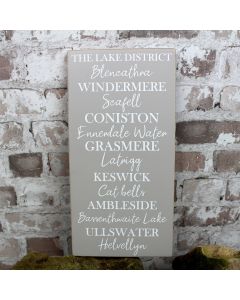 THE LAKE DISTRICT
Blencathra
WINDERMERE
Scafell
CONISTON
Ennerdale Water
GRASMERE
Latrigg
KESWICK
Cat bells
AMBLESIDE
Bassenthwaite Lake
ULLSWATER
Helvellyn